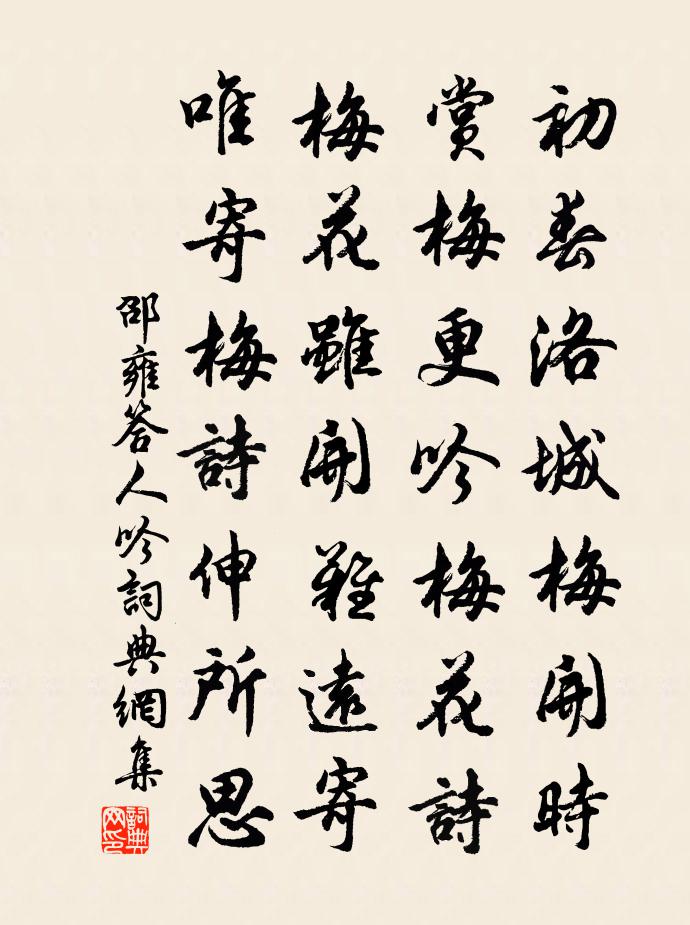 初春洛城梅開時
賞梅更吟梅花詩
梅花雖開難遠寄
唯寄梅詩伸所思
邵雍答人吟詞典網集
詞典網印